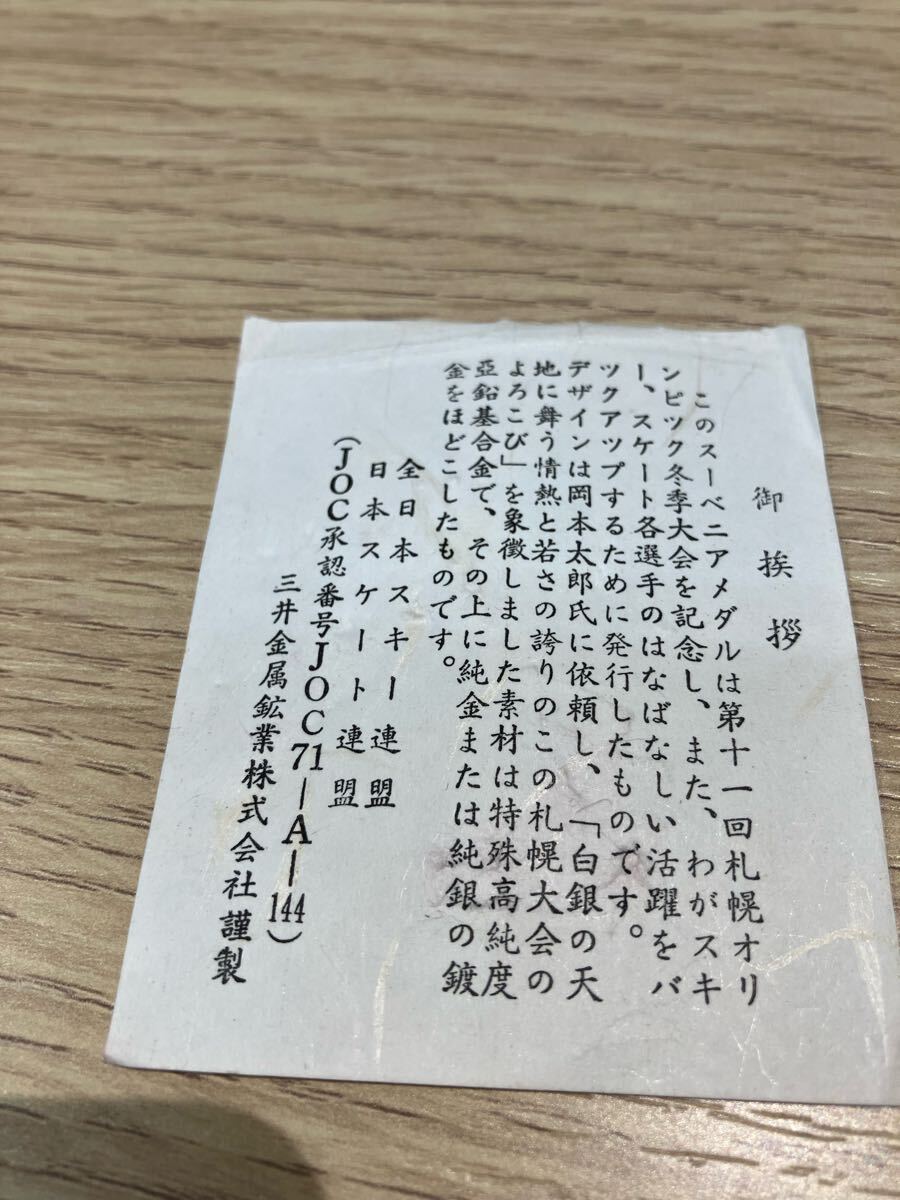 御挨拶
このスーベニアメダルは第十一回札幌オリ
ンピック冬季大会を記念し、また、わがスキ
ー、スケート各選手のはなばなしい活躍をバ
ツクアツプするために発行したものです。
デザインは岡本太郎氏に依頼し、「白銀の天
地に舞う情熱と若さの誇りのこの札幌大会の
よろこび」を象徴しました素材は特殊高純度
亞鉛基合金で、その上に純金または純銀の鍍
金をほどこしたものです。
全日本スキー連盟
日本スケート連盟
(JOC承認番号JOC71―A―144)
三井金属鉱業株式会社謹製